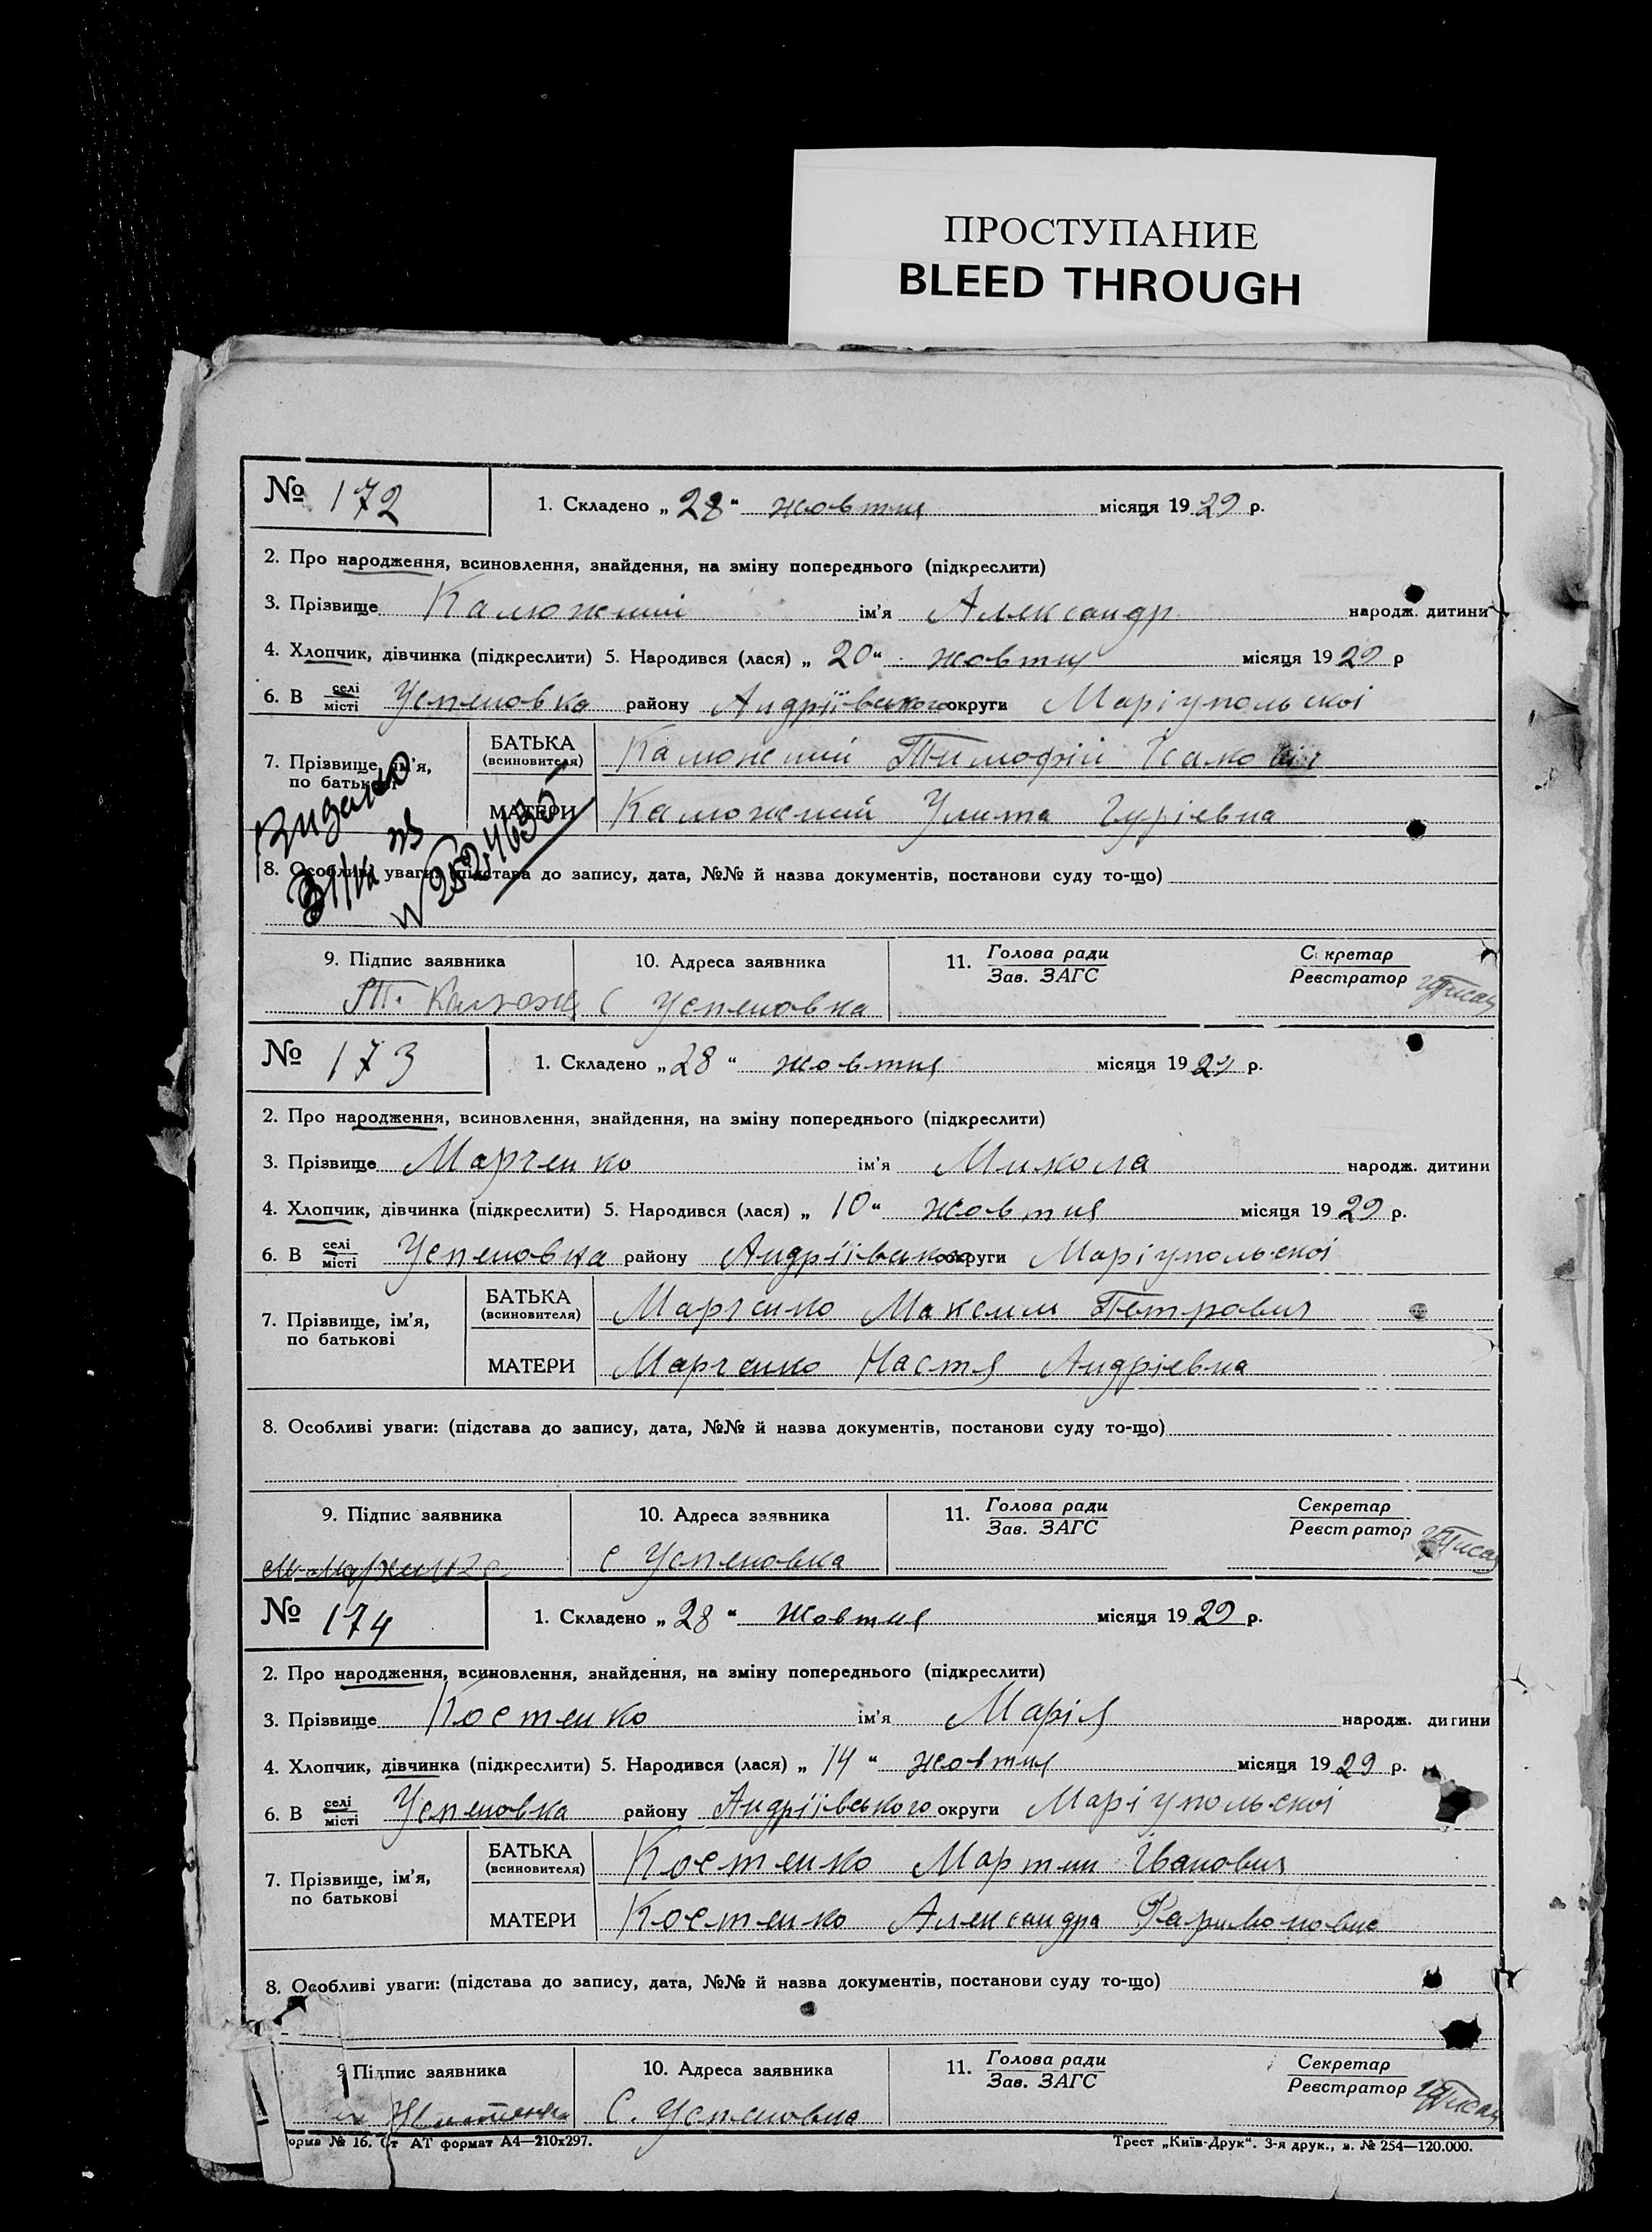 ПРОСТУПАНИЕ
BLEED THROUGH
№ 172 1. Складено „28“ жовтня місяця 1929 р.
2. Про народження, всиновлення, знайдення, на зміну попереднього (підкреслити)
3. Прізвище Калюжний ім'я Александр народж. дитини
4. Хлопчик, дівчинка (підкреслити) 5. Народився (лася) „20“ жовтня місяця 1929 р
6. В селі місті Успеновка району Андріївського округи Маріупольскоі
7. Прізвище, ім'я, по батькові
БАТЬКА (всиновителя) Калюжний Тимофій Ісакович
МАТЕРИ Калюжний Улита Гуріевна
Видано
8. Особливі уваги: (підстава до запису, дата, №№ й назва документів, постанови суду то-що)
9. Підпис заявника 10. Адреса заявника 11. Голова ради Зав. ЗАГС Секретар Реєстратор
Т. Калюжн С Успеновка
№ 173 1. Складено „28“ жовтня місяця 1929 р.
2. Про народження, всиновлення, знайдення, на зміну попереднього (підкреслити)
3. Прізвище Марченко ім'я Микола народж. дитини
4. Хлопчик, дівчинка (підкреслити) 5. Народився (лася) „10“ жовтня місяця 1929 р.
6. В селі місті Успеновка району Андріївського округи Маріупольскоі
7. Прізвище, ім'я, по батькові
БАТЬКА (всиновителя) Марченко Максим Петрович
МАТЕРИ Марченко Настя Андріевна
8. Особливі уваги: (підстава до запису, дата, №№ й назва документів, постанови суду то-що)
9. Підпис заявника 10. Адреса заявника 11. Голова ради Зав. ЗАГС Секретар Реєстратор
с Успеновка
№ 174 1. Складено „28“ жовтня місяця 1929 р.
2. Про народження, всиновлення, знайдення, на зміну попереднього (підкреслити)
3. Прізвище Костенко ім'я Марія народж. дитини
4. Хлопчик, дівчинка (підкреслити) 5. Народився (лася) „14“ жовтня місяця 1929 р.
6. В селі місті Успеновка району Андріївського округи Маріупольскоі
7. Прізвище, ім'я, по батькові
БАТЬКА (всиновителя) Костенко Мартин Іванович
МАТЕРИ Костенко Александра
8. Особливі уваги: (підстава до запису, дата, №№ й назва документів, постанови суду то-що)
9 Підпис заявника 10. Адреса заявника 11. Голова ради Зав. ЗАГС Секретар Реєстратор
С. Успеновка
орма № 16. Ст АТ формат А4—210х297. Трест „Київ-Друк“. 3-я друк., з. № 254—120.000.